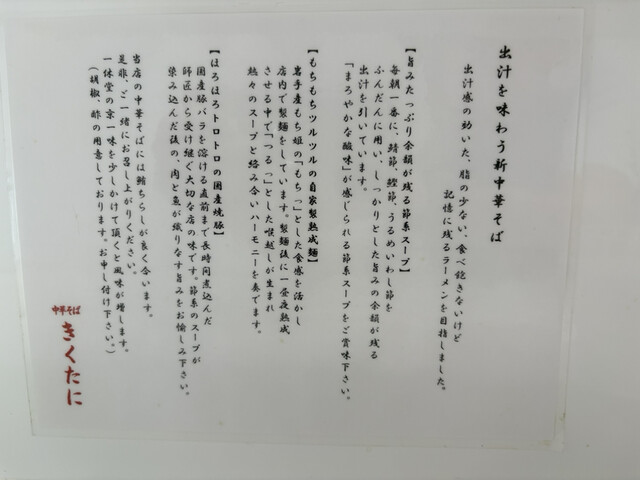 出汁を味わう新中華そば
出汁感の効いた、脂の少ない、食べ飽きないけど
記憶に残るラーメンを目指しました。
【旨みたっぷり余韻が残る節系スープ】
毎朝一番に、鯖節、鰹節、うるめいわし節を
ふんだんに用い、しっかりとした旨みの余韻が残る
出汁を引いています。
「まろやかな酸味」が感じられる節系スープをご賞味下さい。
【もちもちツルツルの自家製熟成麺】
岩手産もち姫の「もちっ」とした食感を活かし
店内で製麺をしています。製麺後に一昼夜熟成
させる中で「つるっ」とした喉越しが生まれ
熱々のスープと絡み合いハーモニーを奏でます。
【ほろほろトロトロの国産焼豚】
国産豚バラを溶ける直前まで長時間煮込んだ
師匠から受け継ぐ大切な店の味です。節系のスープが
染み込んだ後の、肉と魚が織りなす旨みをお愉しみ下さい。
当店の中華そばには鯖ちらしが良く合います。
是非、ご一緒にお召し上がりください。
一休堂の京一味を少しかけて頂くと風味が増します。
(胡椒、酢の用意しております。お申し付け下さい。)
中華そば
きくたに